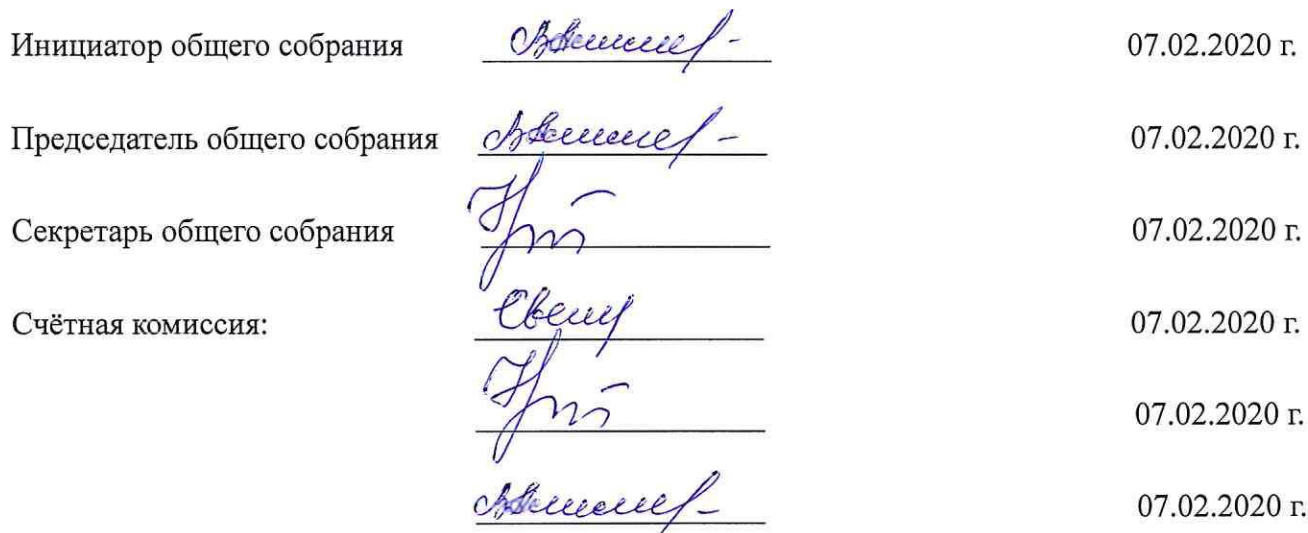 Инициатор общего собрания 07.02.2020 г.
Председатель общего собрания 07.02.2020 г.
Секретарь общего собрания 07.02.2020 г.
Счётная комиссия: 07.02.2020 г.
07.02.2020 г.
07.02.2020 г.